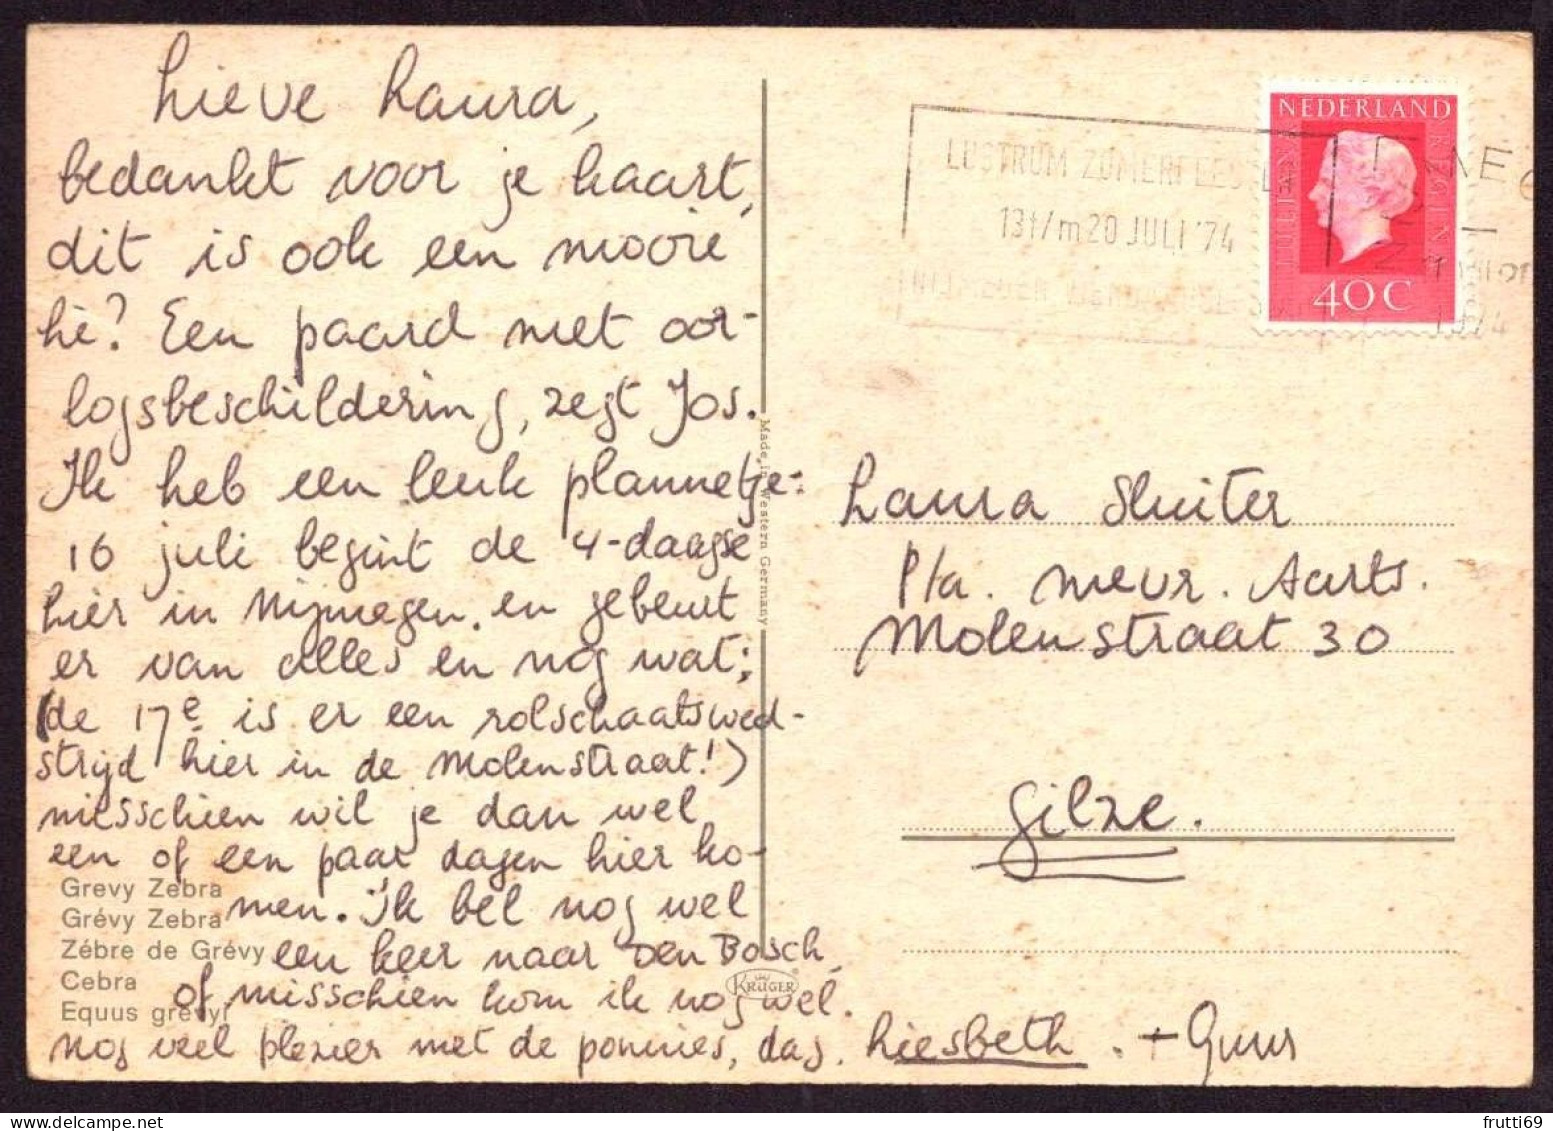 Lieve Laura,
bedankt voor je kaart,
dit is ook een mooie
hè? Een paard met oor-
logsbeschildering, zegt Jos.
Ik heb een leuk plannetje:
16 juli begint de 4-daagse
hier in Nijmegen. en gebeurt
er van alles en nog wat;
(de 17e is er een rolschaatswed-
strijd hier in de Molenstraat!)
misschien wil je dan wel
een of een paar dagen hier ko-
men. Ik bel nog wel
een keer naar Den Bosch,
of misschien kom ik nog wel.
nog veel plezier met de ponnies, dag. Liesbeth. + Guus
Grevy Zebra
Grévy Zebra
Zébre de Grévy
Cebra
Equus grevyi
Made in Western Germany
KRÜGER
LUSTRUM ZOMERFEESTEN
13t/m20 JULI '74
NEDERLAND
40C
1974
Laura Sluiter
p/a. mevr. Aarts.
Molenstraat 30
Gilze.
frutti69